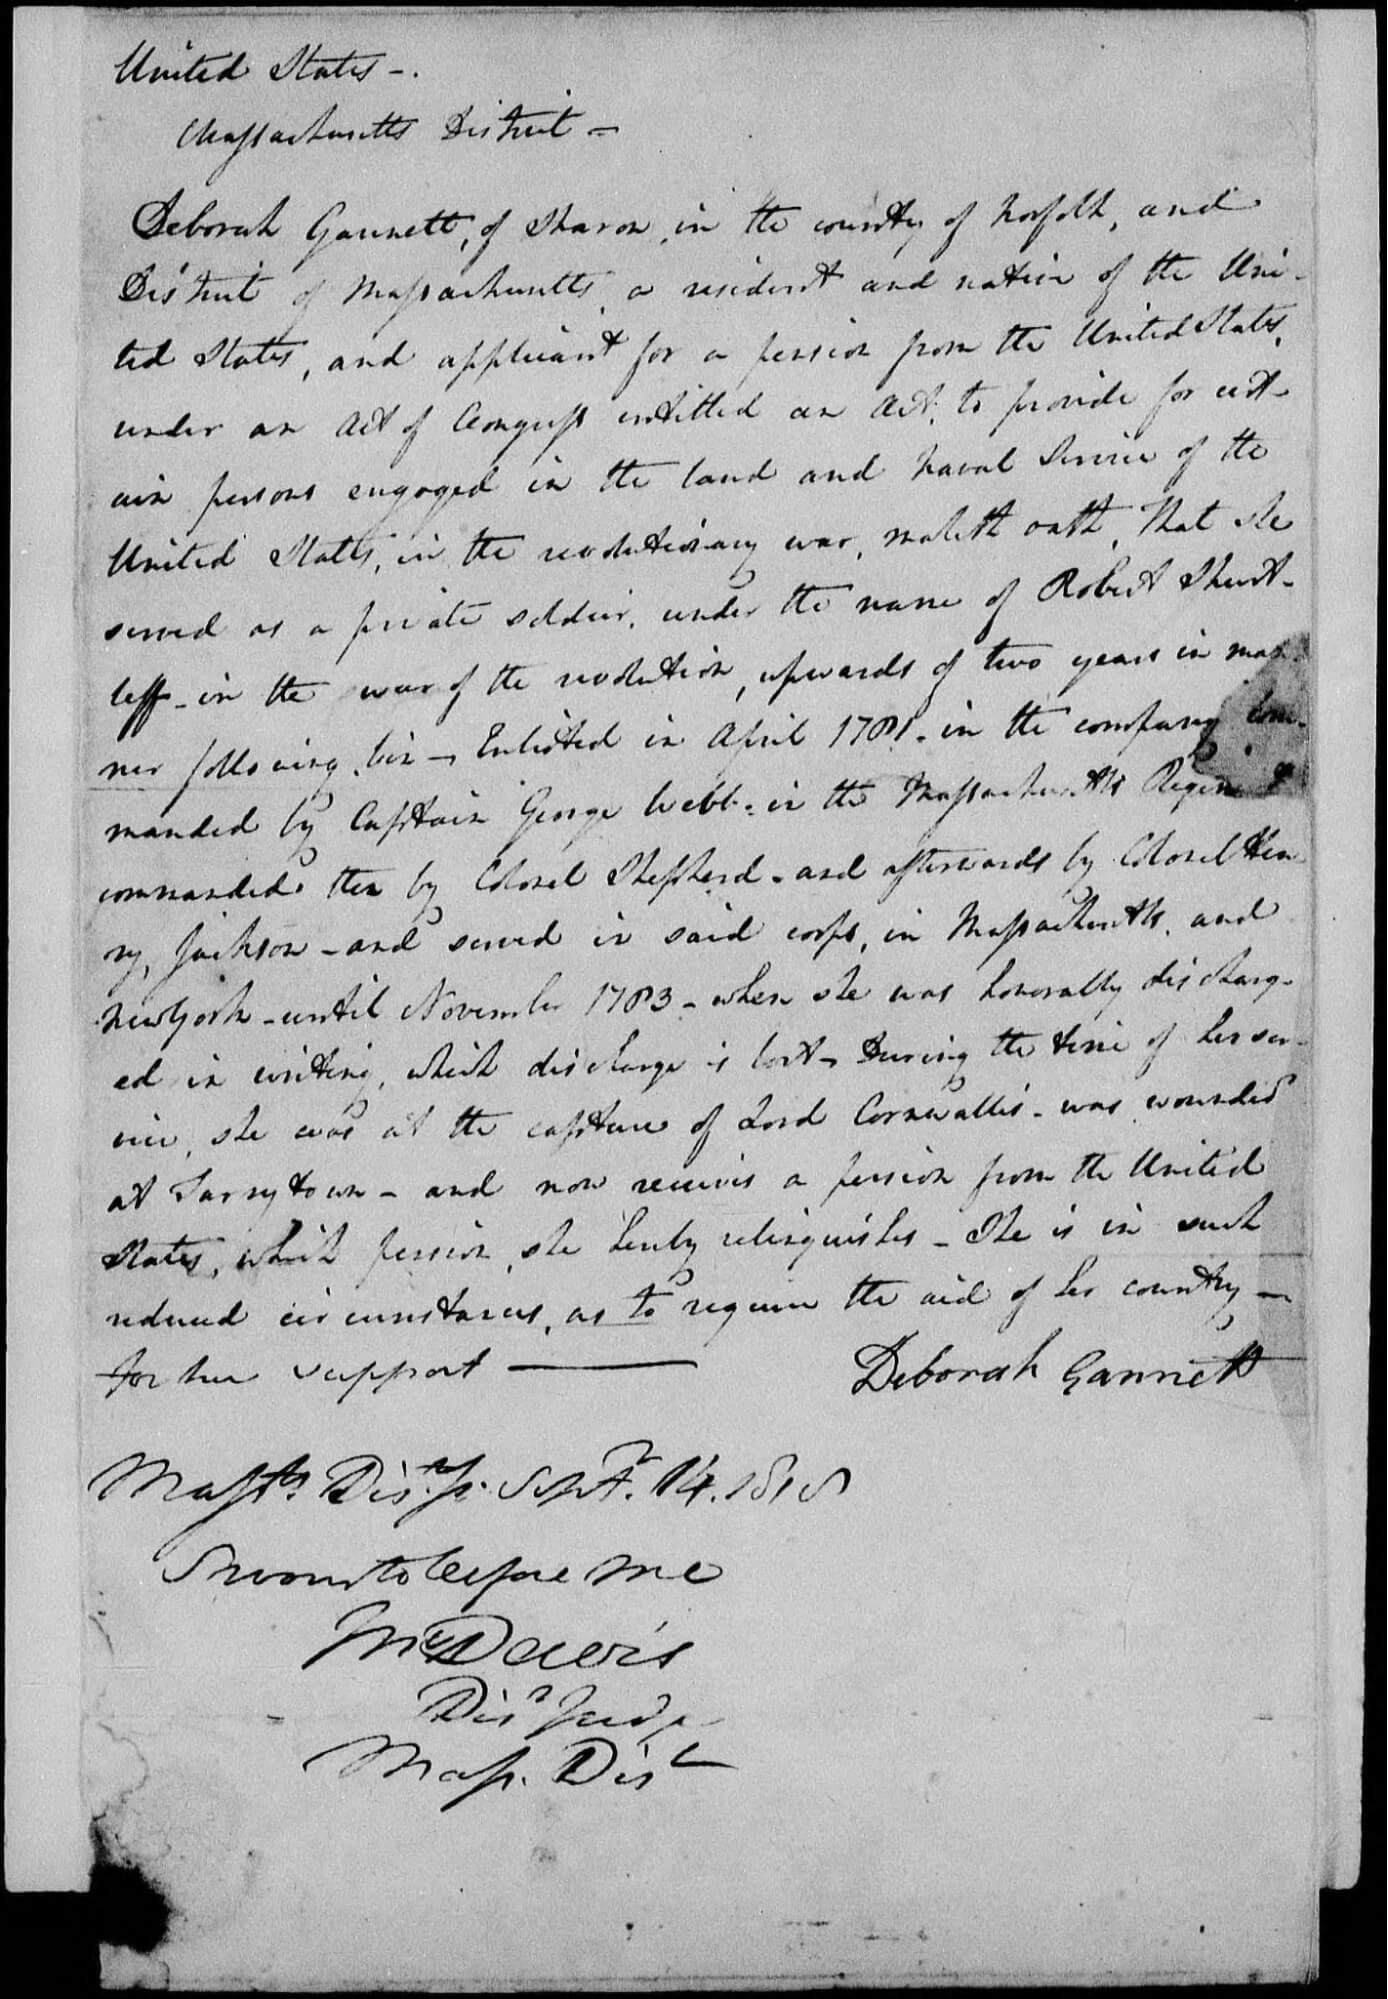 United States -.
Massachusetts District -
Deborah Gannett, of Sharon, in the county of Norfolk, and
District of Massachusetts, a resident and native of the Uni-
ted States, and applicant for a pension from the United States,
under an Act of Congress entitled an Act, to provide for cert-
ain persons engaged in the land and naval Service of the
United States, in the revolutionary war, maketh oath, That she
served as a private soldier, under the name of Robert Shurt-
leff - in the war of the revolution, upwards of two years in man-
ner following, viz - Enlisted in April 1781 - in the company com-
manded by Captain George Webb - in the Massachusetts Regiment
commanded then by Colonel Shepherd - and afterwards by Colonel Hen-
ry, Jackson - and served in said corps, in Massachusetts, and
New York - until November 1783 - when she was honorably discharg-
ed in writing, which discharge is lost - During the time of her ser-
vice, she was at the capture of Lord Cornwallis - was wounded
at Tarrytown - and now receives a pension from the United
States, which pension, she hereby relinquishes - She is in such
reduced circumstances, as to require the aid of her country -
for her support —
Deborah Gannett
Massts. Dist. Sept. 14. 1818
Sworn to before me
Davis
Dist Judge
Mass. Dist